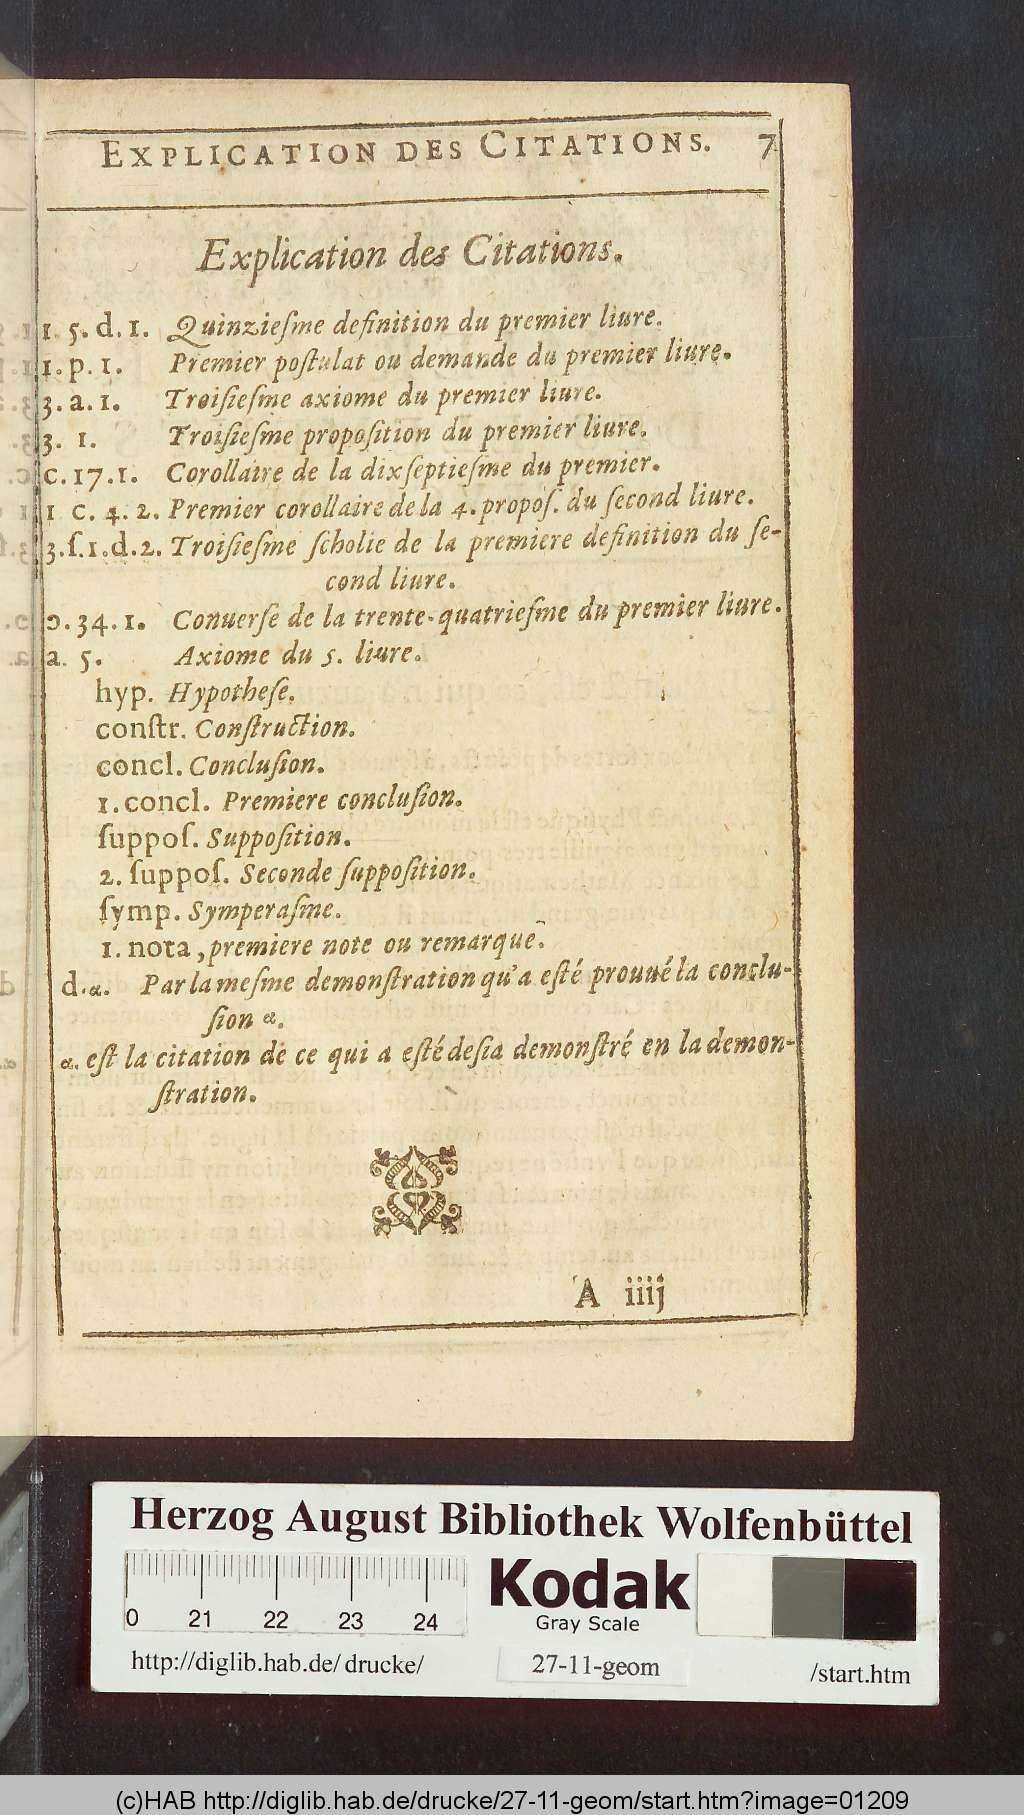 EXPLICATION DES CITATIONS. 7
Explication des Citations.
1. 5. d. 1. Quinzieſme definition du premier liure.
1. p. 1. Premier poſtulat ou demande du premier liure.
3. a. 1. Troiſieſme axiome du premier liure.
3. 1. Troiſieſme propoſition du premier liure.
c. 17. 1. Corollaire de la dixſeptieſme du premier.
1 c. 4. 2. Premier corollaire de la 4. propoſ. du ſecond liure.
3. ſ. 1. d. 2. Troiſieſme ſcholie de la premiere definition du ſe-
cond liure.
ɔ. 34. 1. Conuerſe de la trente-quatrieſme du premier liure.
a. 5. Axiome du 5. liure.
hyp. Hypotheſe.
conſtr. Conſtruction.
concl. Concluſion.
1. concl. Premiere concluſion.
ſuppoſ. Suppoſition.
2. ſuppoſ. Seconde ſuppoſition.
ſymp. Symperaſme.
1. nota, premiere note ou remarque.
d. α. Par la meſme demonſtration qu'a eſté prouué la conclu-
ſion α.
α. eſt la citation de ce qui a eſté deſia demonſtré en la demon-
ſtration.
A iiij
Herzog August Bibliothek Wolfenbüttel
0 21 22 23 24
Kodak
Gray Scale
http://diglib.hab.de/drucke/ 27-11-geom /start.htm
(c)HAB http://diglib.hab.de/drucke/27-11-geom/start.htm?image=01209